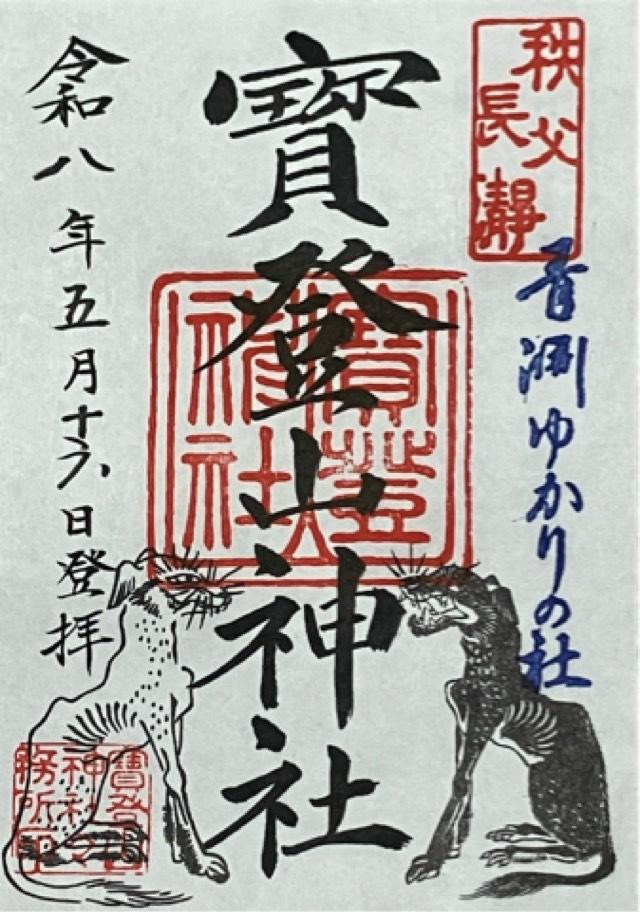 秩父
長瀞
青淵ゆかりの社
寳登山神社
令和八年五月十六日登拝
寳登山
神社之
務所印